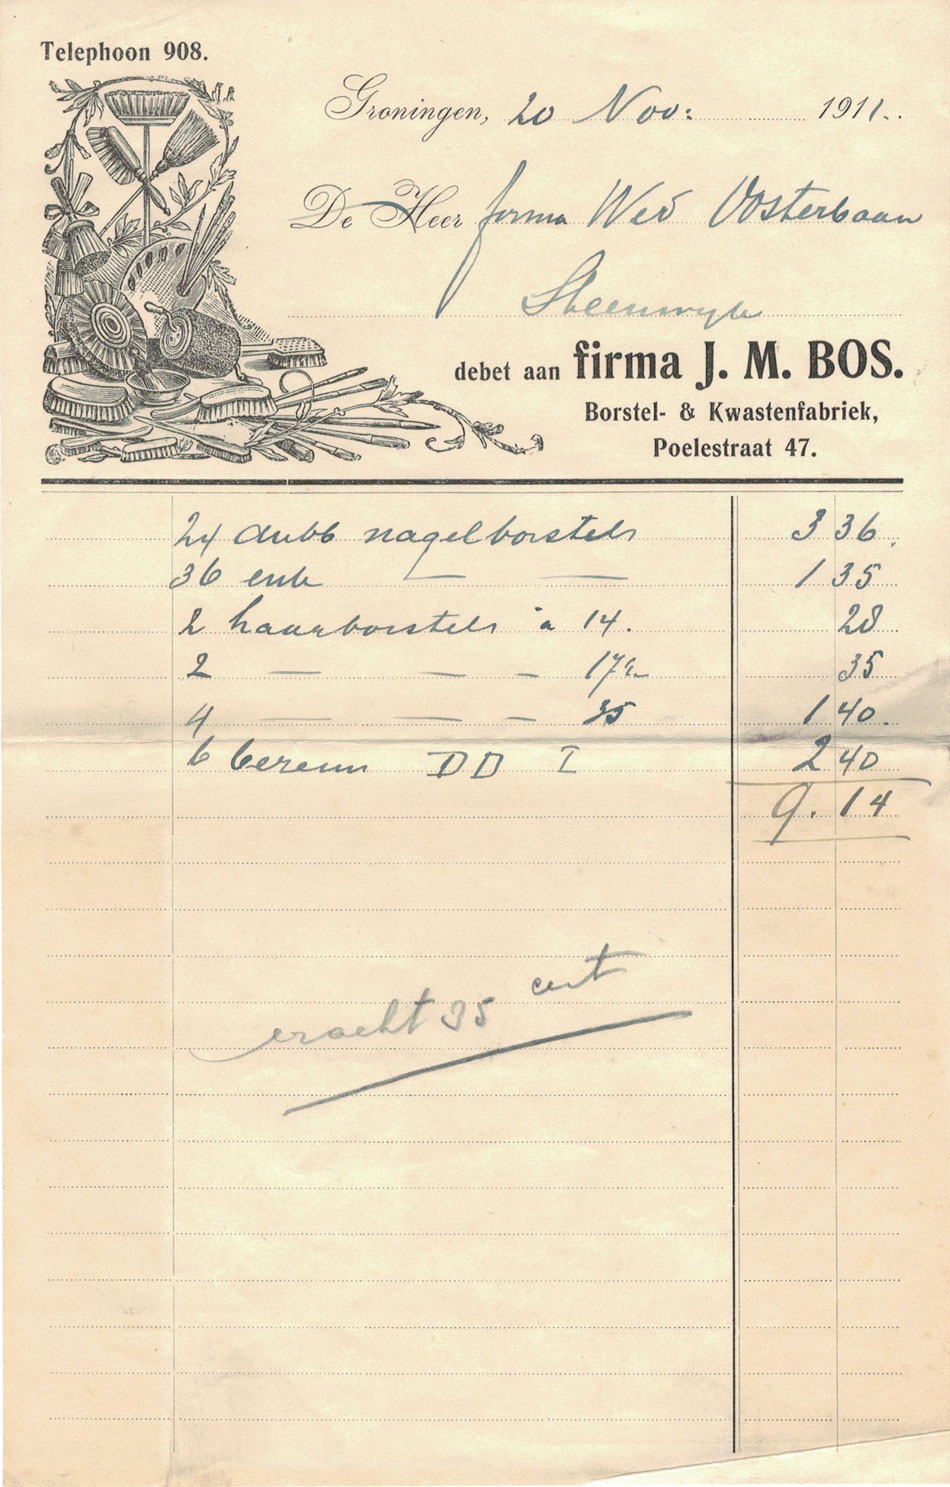 Telephoon 908.
Groningen, 20 Nov: 1911.
De Heer firma Wed Oosterbaan
Steenwyk
debet aan firma J. M. BOS.
Borstel- & Kwastenfabriek,
Poelestraat 47.
24 dubb nagelborstels 3 36.
36 enk — — 1 35
2 haarborstels a 14. 28
2 — — - 17½ 35
4 — — - 35 1 40.
6 DD I 2 40
9.14
vracht 35 cent